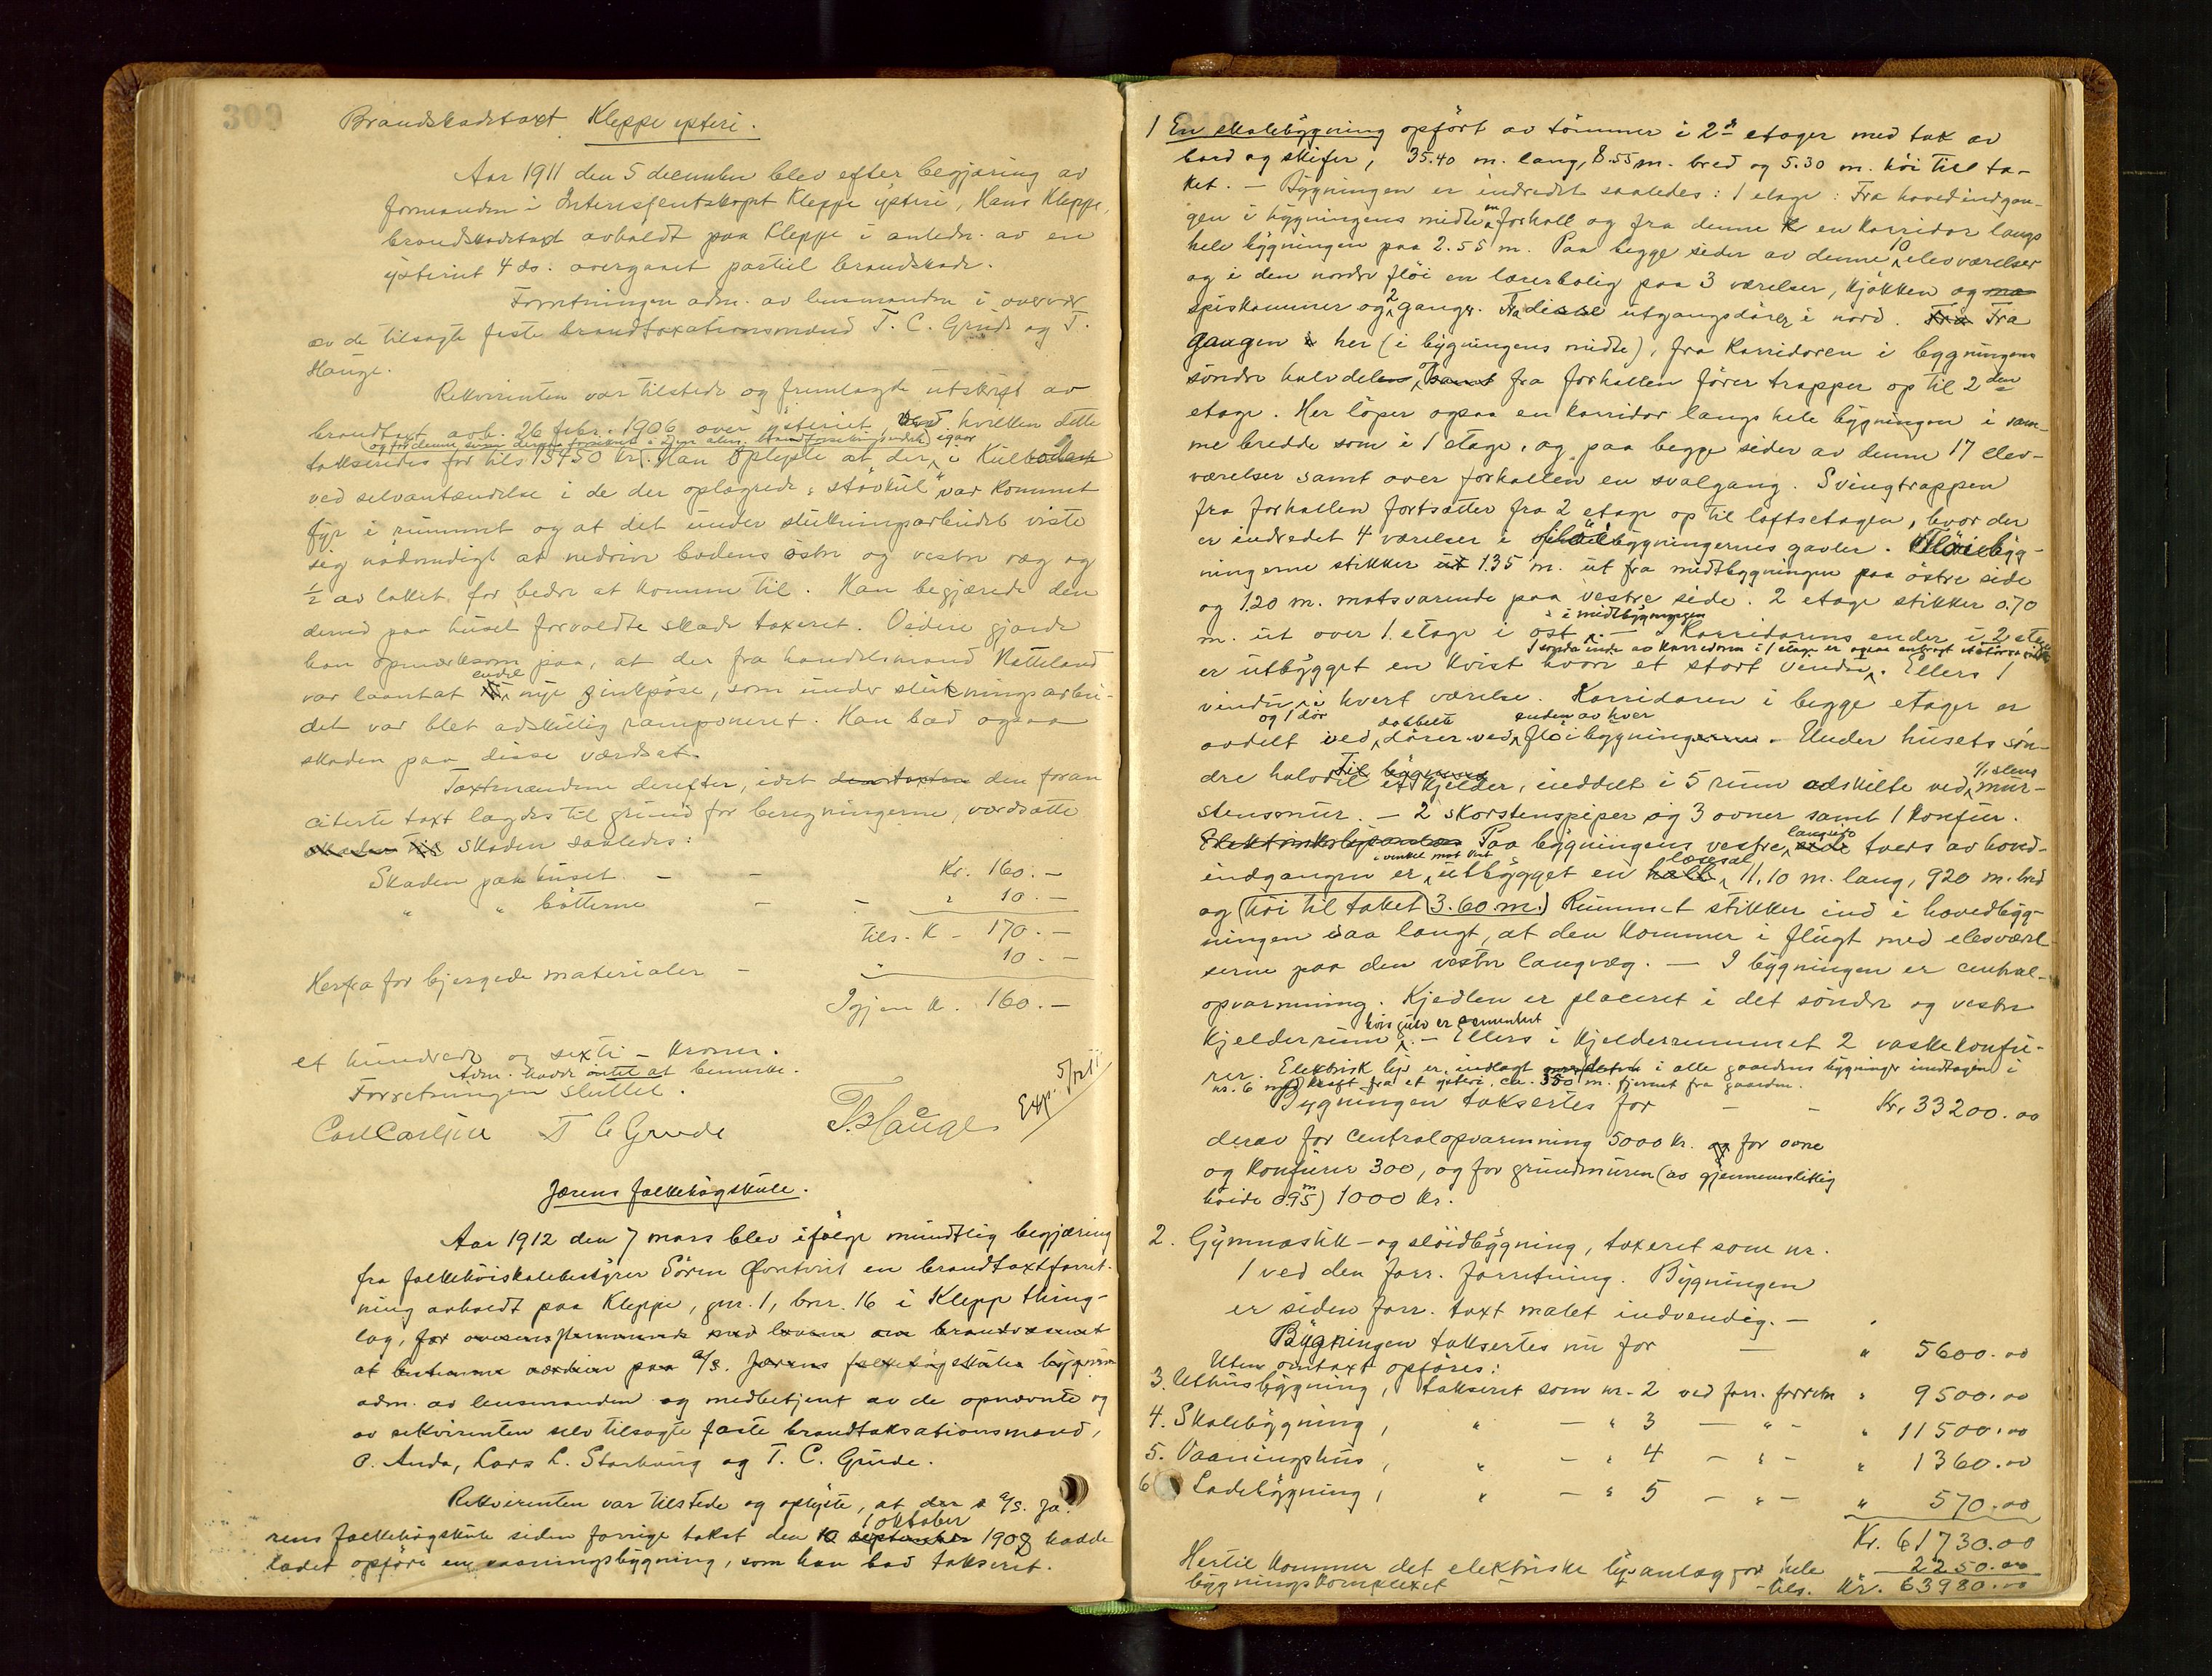 309
Brandskadetaxt Kleppe ysteri.
Aar 1911 den 5 december blev efter begjæring av
formanden i Interessentskapet Kleppe ysteri, Hans Kleppe,
brandskadetaxt avholdt paa Kleppe i anledn. av en
ysteriet 4 ds. overgaaet partiel brandskade.
Forretningen adm. av lensmanden i overvær
av de tilsagte faste brandtaxationsmænd T. C. Grude og T.
Hauge.
Rekvirenten var tilstede og fremlagde utskrift av
brandtaxt avh. 26 febr. 1906 over ysteriet, hvilken dette
og for denne sum
takseredes for tils 13450 kr. Han oplyste at der i
ved selvantændelse i de der oplagrede "støvkul" var kommet
fyr i rummet og at det under slukningsarbeidet viste
sig nødvendigt at nedrive bodens østre og vestre væg og
½ av loftet for bedre at komme til. Han begjærede den
derved paa huset forvoldte skade taxeret. Videre gjorde
han opmerksom paa, at der fra handelsmand Nætteland
var laant endel nye zinkpøse, som under slukningsarbei-
det var blet adskillig ramponeret. Han bad ogsaa
skaden paa disse værdsat.
Taxtmændene derefter, idet den foran
citerte taxt lagdes til grund for beregningerne, værdsatte
skaden saaledes:
Skaden paa huset — — Kr. 160.—
" " bøtterne — — " 10.—
Tils. K — 170.—
Herfra for bjergede materialer — " 10.—
Igjen K. 160.—
et hundrede og sexti — kroner.
Adm. hadde intet at bemerke.
Forretningen sluttet.
Carl Carlsen T C Grude T. Hauge
Exp. 5/12 11
Jærens folkehøgskule.
Aar 1912 den 7 mars blev ifølge mundtlig begjæring
fra folkehøiskolebestyrer Søren en brandtaxtforret-
ning avholdt paa Kleppe, gnr. 1, bnr. 16 i Klepp thing-
lag, for overensstemmende med lovene om brandvæsenet
at bestemme værdien paa a/s. Jærens folkehøgskules bygninger
adm. av lensmanden og medbetjent av de opnævnte og
av rekvirenten selv tilsagte faste brandtaksationsmænd,
O. Anda, Lars L. Storhaug og T. C. Grude.
Rekvirenten var tilstede og oplyste, at der a/s. Jæ-
1 oktober
rens folkehøgskule siden forrige takst den 10 september 1908 hadde
ladet opføre en vaaningsbygning, som han bad takseret.
1 En skolebygning opført av tømmer i 2de etager med tak av
bord og skifer, 35.40 m. lang, 8.55 m. bred og 5.30 m. høi til ta-
ket. — Bygningen er indredet saaledes: 1 etage: Fra hovedindgan-
gen i bygningens midte en forhall og fra denne en korridor langs
hele bygningen paa 2.55 m. Paa begge sider av denne 10 elevværelser
og i den nordre fløi en lærerbolig paa 3 værelser, kjøkken og
spiskammer og 2 ganger. Fra disse utgangsdører i nord. Fra
gangen her (i bygningens midte), fra korridoren i bygningens
søndre halvdel og fra forhallen fører trapper op til 2den
etage. Her løper ogsaa en korridor langs hele bygningen i sam-
me bredde som i 1 etage, og paa begge sider av denne 17 elev-
værelser samt over forhallen en svalgang. Svingtrappen
fra forhallen fortsætter fra 2 etage op til loftsetagen, hvor der
er indredet 4 værelser i fløibygningernes gavler. Fløibyg-
ningerne stikker 1.35 m. ut fra midtbygningen paa østre side
og 1.20 m. motsvarende paa vestre side. 2 etage stikker 0.70
i midtbygningen
m. ut over 1. etage i øst. — I korridorens ender i 2 etage
er utbygget en kvist hvori et stort vindu. Ellers 1
vindu i hvert værelse. Korridoren i begge etager er
og 1 dør dobbelte enden av hver
avdelt ved dører ved fløibygning. — Under husets søn-
dre halvdel et kjelder, inddelt i 5 rum adskilte ved ½ stens mur-
stensmur. — 2 skorstenspiper og 3 ovner samt 1 komfur.
Paa bygningens vestre langside tvers av hoved-
i vinkel mot vest læsesal
indgangen er utbygget en 11.10 m. lang, 920 m. bred
og (høi til taket 3.60 m.) Rummet stikker ind i hovedbyg-
ningen saa langt, at den kommer i flugt med elevværel-
serne paa den vestre langvæg. — I bygningen er central-
opvarmning. Kjedlen er placeret i det søndre og vestre
hvis gulv er cementert
kjelderrum. — Ellers i kjelderrummet 2 vaskekomfu-
rer. Elektrisk lys er indlagt i alle gaardens bygninger undtagen i
nr. 6 med kraft fra et ysteri ca. 350 m. fjernet fra gaarden.
Bygningen taksertes for — — Kr. 33200.00
derav for centralopvarmning 5000 kr. for ovne
og komfurer 300, og for grundmuren (av gjennemsnitlig
høide 0.95 m) 1000 kr.
2. Gymnastik- og sløidbygning, taxeret som nr.
1 ved den forr. forretning. Bygningen
er siden forr. taxt malet indvendig. —
Bygningen taksertes nu for — " 5600.00
Uten omtaxt opføres:
3. Uthusbygning, takseret som nr. 2 ved forr. forretn " 9500.00
4. Skolebygning, " — " 3 — " — " 11500.00
5. Vaaningshus, " — " 4 — " — " 1360.00
6 Ladebygning, " — " 5 — " — " 570.00
Kr. 61730.00
Hertil kommer det elektriske lysanlæg for hele 2250.00
bygningskomplexet — tils. Kr. 63980.00